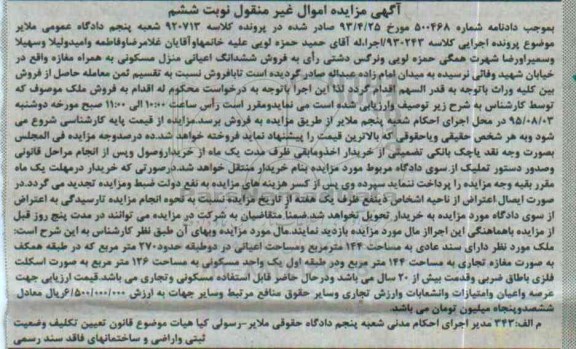 آگهی مزایده اموال غیر منقول نوبت ششم
بموجب دادنامه شماره ۵۰۰۴۶۸ مورخ ۹۳/۴/۲۵ صادر شده در پرونده کلاسه ۹۲۰۷۱۳ شعبه پنجم دادگاه عمومی ملایر
موضوع پرونده اجرایی کلاسه ۹۳-۲۴۳/اجرا،له آقای حمید حمزه لویی علیه خانمهاوآقایان غلامرضاوفاطمه وامیدولیلا وسهیلا
وسمیراورضا شهرت همگی حمزه لویی ونرگس دشتی رأی به فروش ششدانگ اعیانی منزل مسکونی به همراه مغازه واقع در
خیابان شهید وفائی نرسیده به میدان امام زاده عبداله صادر گردیده است تابافروش نسبت به تقسیم ثمن معامله حاصل از فروش
بین کلیه وراث باتوجه به قدر السهم اقدام گردد لذا این اجرا باتوجه به درخواست محکوم له اقدام به فروش ملک موصوف که
توسط کارشناس به شرح زیر توصیف وارزیابی شده است می نمایدومقرر است رأس ساعت ۱۰:۰۰ الی ۱۱:۰۰ صبح مورخه دوشنبه
۹۵/۰۸/۰۳ در محل اجرای احکام شعبه پنجم ملایر از طریق مزایده به فروش برسد.مزایده از قیمت پایه کارشناسی شروع می
شود وبه هر شخص حقیقی ویاحقوقی که بالاترین قیمت را پیشنهاد نماید فروخته خواهد شد.ده درصدوجه مزایده فی المجلس
بصورت وجه نقد یاچک بانکی تضمینی از خریدار اخذومابقی ظرف مدت یک ماه از خریداروصول وپس از انجام مراحل قانونی
وصدور دستور تملیک از سوی دادگاه مربوط مورد مزایده بنام خریدار منتقل خواهد شد.درصورتی که خریدار درمهلت یک ماه
مقرر بقیه وجه مزایده را پرداخت ننماید سپرده وی پس از کسر هزینه های مزایده به نفع دولت ضبط ومزایده تجدید می گردد.در
صورت ایصال اعتراض از ناحیه اشخاص ذینفع ظرف یک هفته از تاریخ مزایده نسبت به نحوه انجام مزایده تارسیدگی به اعتراض
از سوی دادگاه مورد مزایده به خریدار تحویل نخواهد شد.ضمناً متقاضیان به شرکت در مزایده می توانند در مدت پنج روز قبل
از مزایده باهماهنگی این اجرااز مال مورد مزایده بازدید نمایند.مال مورد مزایده وبهای آن طبق نظر کارشناس به این شرح است:
ملک مورد نظر دارای سند عادی به مساحت ۱۴۴ مترمربع ومساحت اعیانی در دوطبقه حدود۲۷۰ متر مربع که در طبقه همکف
به صورت مغازه تجاری به مساحت ۱۴۴ متر مربع ودر طبقه اول یک واحد مسکونی به مساحت ۱۲۶ متر مربع به صورت اسکلت
فلزی باطاق ضربی وقدمت بیش از ۲۰ سال می باشد ودرحال حاضر قابل استفاده مسکونی وتجاری می باشد.قیمت ارزیابی جهت
عرصه واعیان وامتیازات وانشعابات وارزش تجاری وسایر حقوق منافع مرتبط وسایر جهات به ارزش ۶/۵۰۰/۰۰۰/۰۰۰ریال معادل
ششصدوپنجاه میلیون تومان می باشد.
م الف:۳۴۳ مدیر اجرای احکام مدنی شعبه پنجم دادگاه حقوقی ملایر-رسولی کیا هیات موضوع قانون تعیین تکلیف وضعیت
ثبتی واراضی و ساختمانهای فاقد سند رسمی